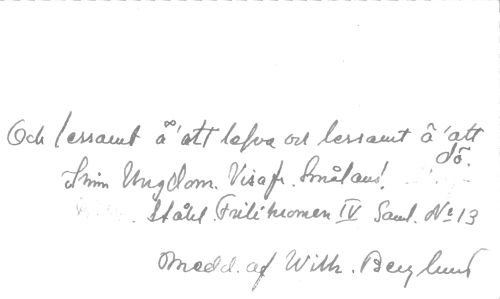 Och lessamt ä'att lefva och lessamt ä'att
dö.
I min Ungdom. Visa fr. Småland.
Ståhl. Frilitzmomen IV Saml. No 13
Medd. af Wilh. Berglund